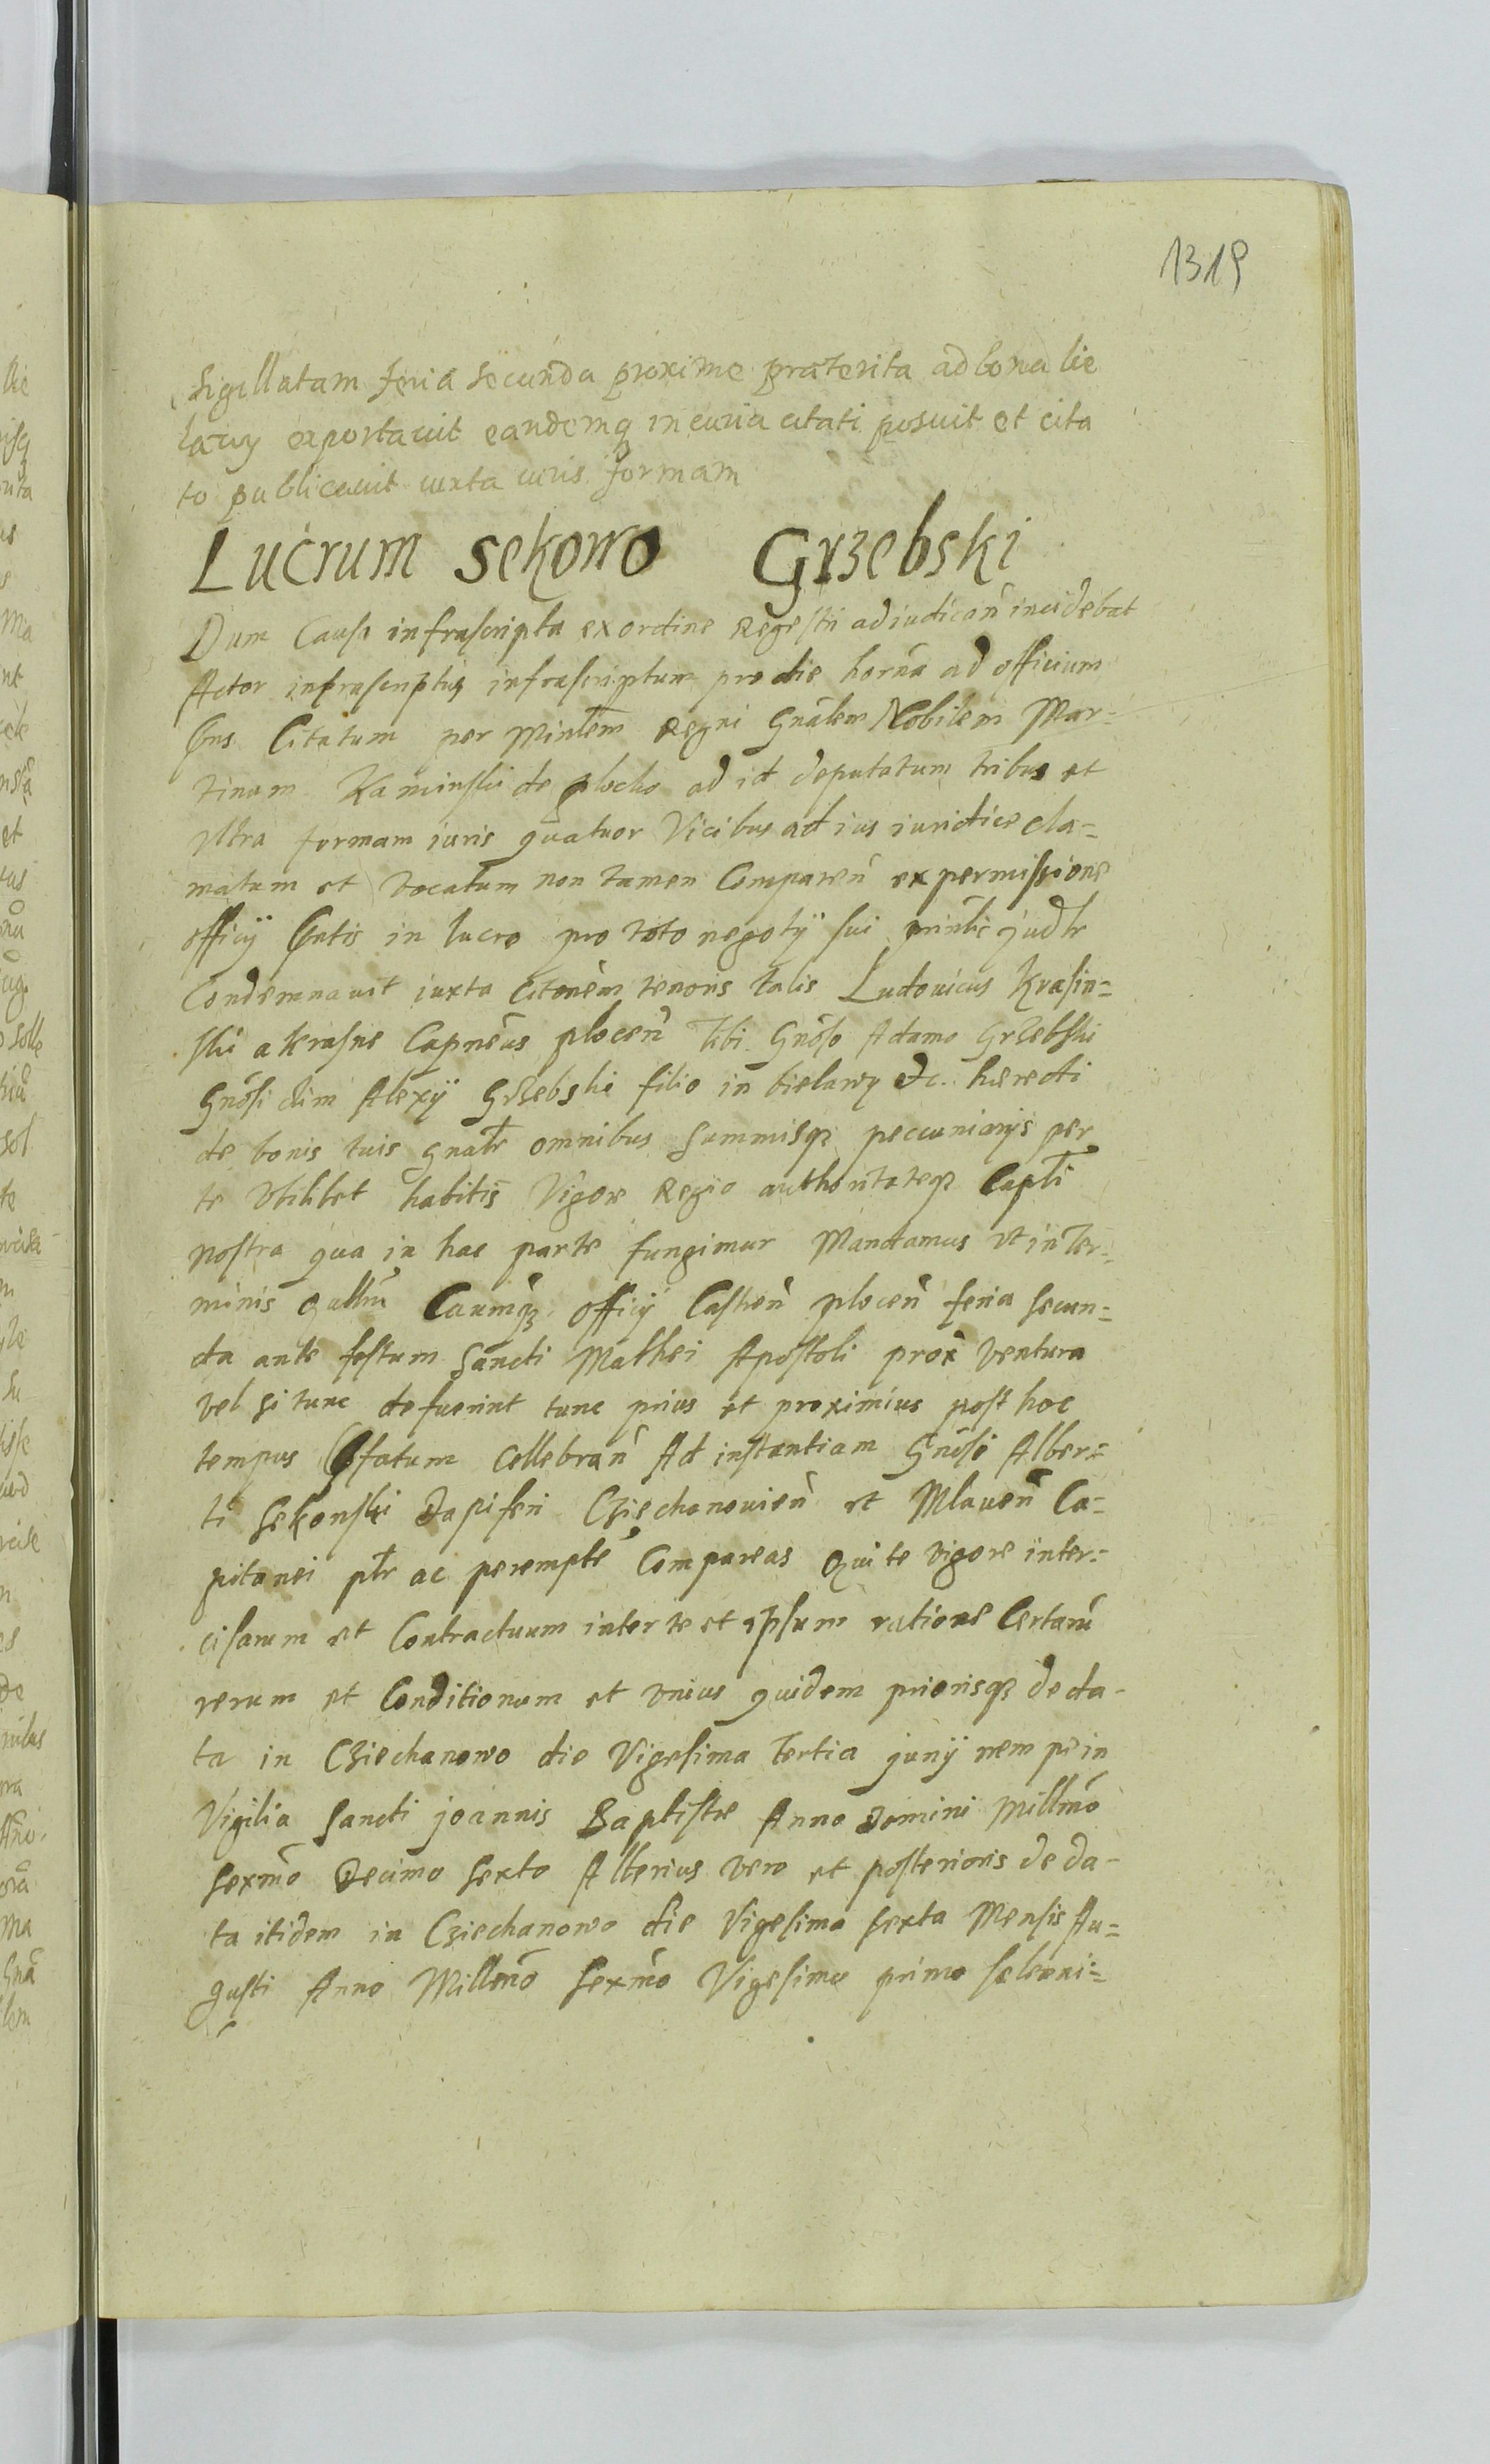 1319
Sigillatam feria secunda proxime praterita ad bona bie
lawy exportavit eandemq in curia citati posuit et cita
to publicavit iuxta iuris formam
Lucrum Sekowo Grzebski
Dum Causa infrascripta ex ordine Regestri adiudican̄ incidebat
Actor infrascriptus infrascriptum pro die horna ad officium
Citatum per Minlem Regni Gnalem Nobilem Mar-
tinum Kaminski de plocko ad id deputatum tribus et
Vltra formam iuris quatuor Vicibus ad ius iuridice cla=
matum et vocatum non tamen Comparen̄ ex permissione
officÿ in lucro pro toto negotÿ sui
Condemnavit iuxta Citonem tenoris talis Ludouicus Krasin=
ski a Krasne Capneus plocen̄ Tibi Gnoso Adamo Grzebski
Gnosi olim Alexÿ Grzebski filio in bielawy &c. hæredi
de bonis tuis gnalr omnibus Summisq peccuniarÿs per
te Vbilibet habitis Vigore Regio authoritateq Capli
nostra qua in hac parte fungimur Mandamus vt in Ter=
minis Qullru Caumq officÿ Castren̄ plocen̄ feria secun=
da ante festum Sancti Mathei Apostoli prox Ventura
vel si tunc defuerint tunc prius et proximius post hoc
tempus fatum Cellebran̄ Ad instantiam Gnosi Alber=
ti Sekonski Dapiferi Cziechanouien̄ et Mlauen̄ Ca=
pitanei plr ac perempte Compareas Qui te vigore inter=
cisarum et Contractuum inter te et ipsum ratione Certaru
rerum et Conditionum et vnius quidem priorisq de da-
ta in Cziechanowo die Vigesima Tertia junÿ nempe in
Vigilia Sancti joannis Baptistæ Anno Domini Millmo
Sexmo Decimo Sexto Alterius vero et posterioris de da-
ta itidem in Cziechanowo die Vigesima Sexta Mensis Au=
gusti Anno Millmo Sexmo Vigesimo primo